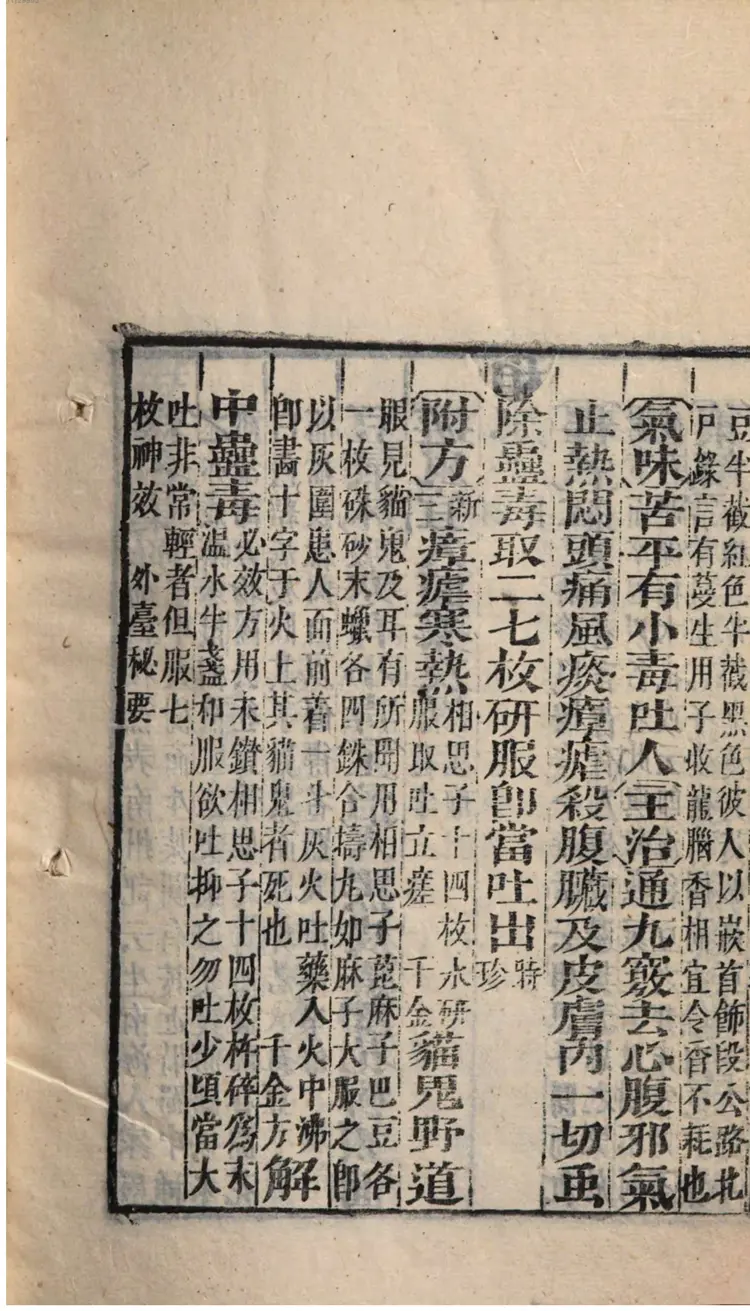 豆半截紅色半截黑色彼人以嵌首飾段公路北
戸錄言有蔓生用子收龍腦香相宜令香不耗也
氣味苦平有小毒吐人主治通九竅去心腹邪氣
止熱悶頭痛風痰瘴瘧殺腹臟及皮膚內一切蟲
除蠱毒取二七枚研服卽當吐出時珍
附方新三瘴瘧寒熱相思子十四枚水研服取吐立瘥 千金貓鬼野道
眼見貓鬼及耳有所聞用相思子蓖麻子巴豆各
一枚硃砂末蠟各四銖合擣丸如麻子大服之卽
以灰圍患人面前着一斗灰火吐藥入火中沸
卽畫十字于火上其貓鬼者死也 千金方解
中蠱毒必效方用未鑽相思子十四枚杵碎爲末
溫水半盞和服欲吐抑之勿吐少頃當大
吐非常輕者但服七
枚神效 外臺秘要